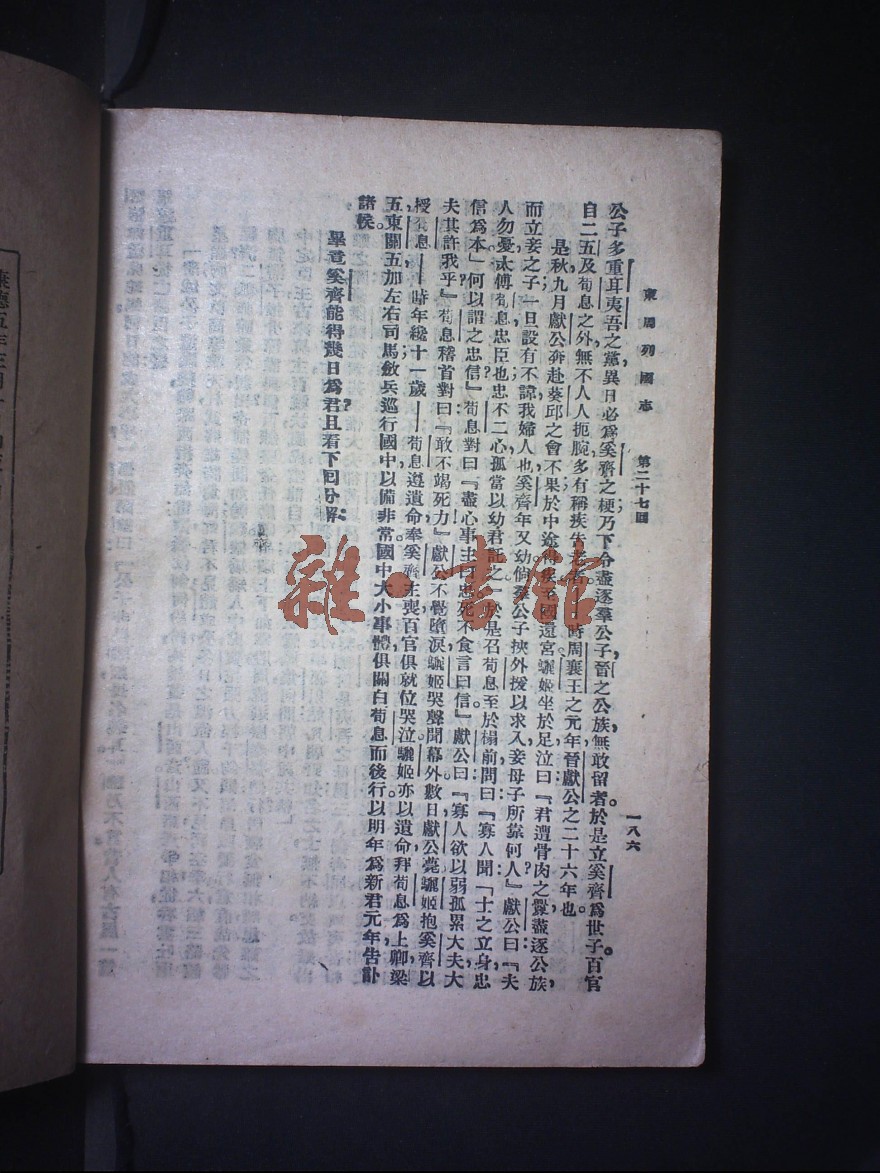 東周列國志　第二十七回
一八六
公子多重耳夷吾之黨，異日必爲奚齊之梗，乃下令盡逐羣公子，晉之公族，無敢留者。於是立奚齊爲世子。百官
自二五及荀息之外，無不人人扼腕，多有稱疾失老者。時周襄王之元年，晉獻公之二十六年也。
是秋九月，獻公奔赴葵邱之會，不果，於中途得疾，至國還宮，驪姬坐於足，泣曰：『君遭骨肉之釁，盡逐公族，
而立妾之子，一旦設有不諱，我婦人也，奚齊年又幼，倘羣公子挾外援以求入，妾母子所靠何人？』獻公曰：『夫
人勿憂，太傅荀息，忠臣也，忠不二心，孤當以幼君託之。』於是召荀息至於榻前，問曰：『寡人聞「士之立身，忠
信爲本」，何以謂之忠信？』荀息對曰：『盡心事主曰忠，死不食言曰信。』獻公曰：『寡人欲以弱孤累大夫，大
夫其許我乎？』荀息稽首對曰：『敢不竭死力？』獻公不覺墮淚，驪姬哭聲聞幕外。數日，獻公薨。驪姬抱奚齊以
授荀息，時年纔十一歲。荀息遵遺命，奉奚齊主喪，百官俱就位哭泣。驪姬亦以遺命，拜荀息爲上卿，梁
五東關五加左右司馬，斂兵巡行國中，以備非常。國中大小事體，俱關白荀息而後行。以明年爲新君元年，告訃
諸侯。
畢竟奚齊能得幾日爲君？且看下回分解：
雜·書館